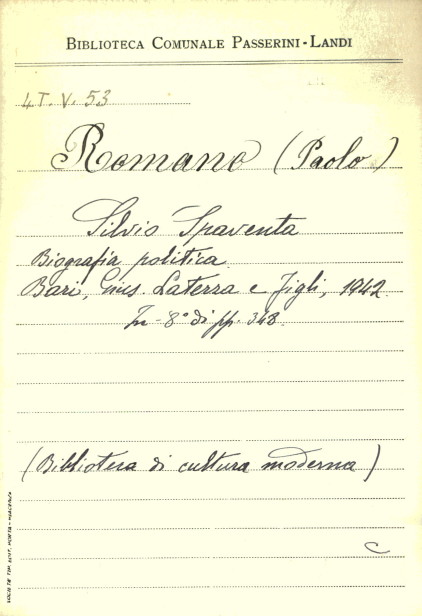 BIBLIOTECA COMUNALE PASSERINI-LANDI
4T. V. 53
Romano (Paolo)
Silvio Spaventa
Biografia politica
Bari, Gius. Laterza e Figli, 1942
In-8° di pp. 348.
(Biblioteca di cultura moderna)
C